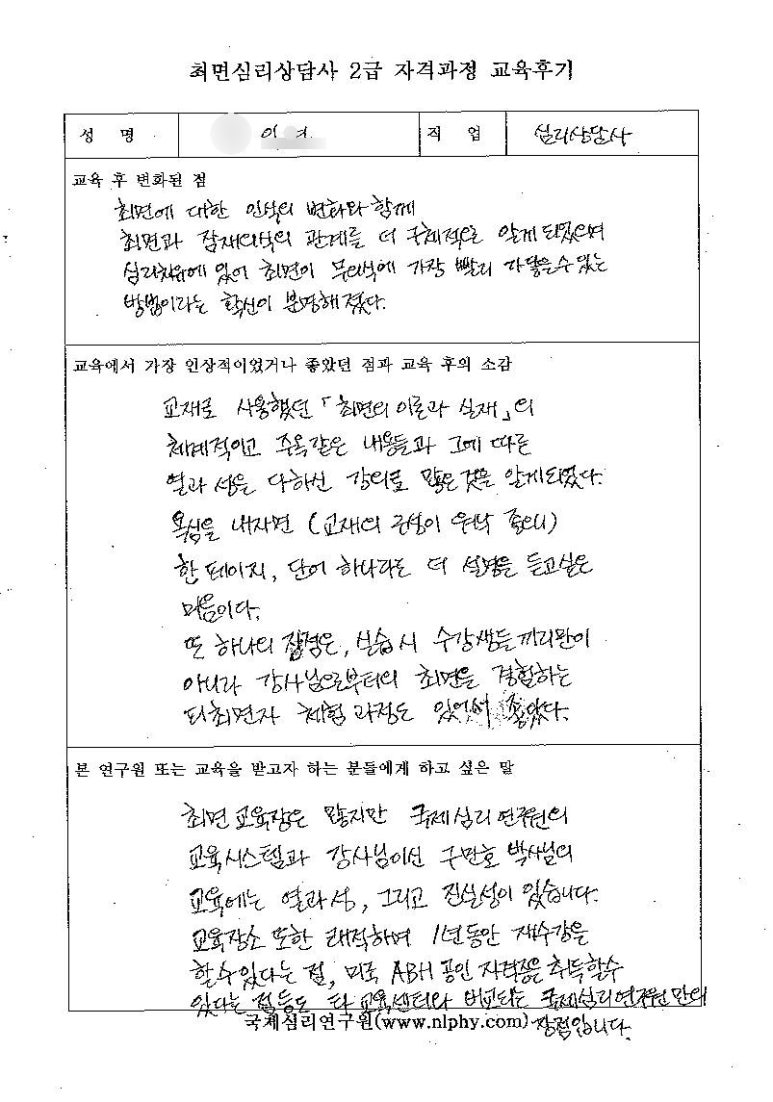 최면심리상담사 2급 자격과정 교육후기
성 명 이 직 업 심리상담사
교육 후 변화된 점
최면에 대한 인식의 변화와 함께
최면과 잠재의식의 관계를 더 구체적으로 알게 되었으며
심리치유에 있어 최면이 무의식에 가장 빨리 가 닿을 수 있는
방법이라는 확신이 분명해졌다.
교육에서 가장 인상적이었거나 좋았던 점과 교육 후의 소감
교재로 사용했던 「최면의 이론과 실재」의
체계적이고 주옥같은 내용들과 그에 따른
열과 성을 다하신 강의로 많은 것을 알게되었다.
욕심을 내자면 (교재의 구성이 워낙 좋으니)
한 페이지, 단어 하나라도 더 설명을 듣고싶은
마음이다.
또 하나의 장점은, 실습 시 수강생들 끼리만이
아니라 강사님으로부터의 최면을 경험하는
피최면자 체험 과정도 있어서 좋았다.
본 연구원 또는 교육을 받고자 하는 분들에게 하고 싶은 말
최면 교육장은 많지만 국제심리연구원의
교육시스템과 강사님이신 구만호 박사님의
교육에는 열과 성, 그리고 진실성이 있습니다.
교육장소 또한 쾌적하며 1년동안 재수강을
할 수 있다는 점, 미국 ABH 공인 자격증을 취득할수
있다는 점등도 타 교육센터와 비교되는 국제심리연구원만의
장점입니다.
국제심리연구원(www.nlphy.com)